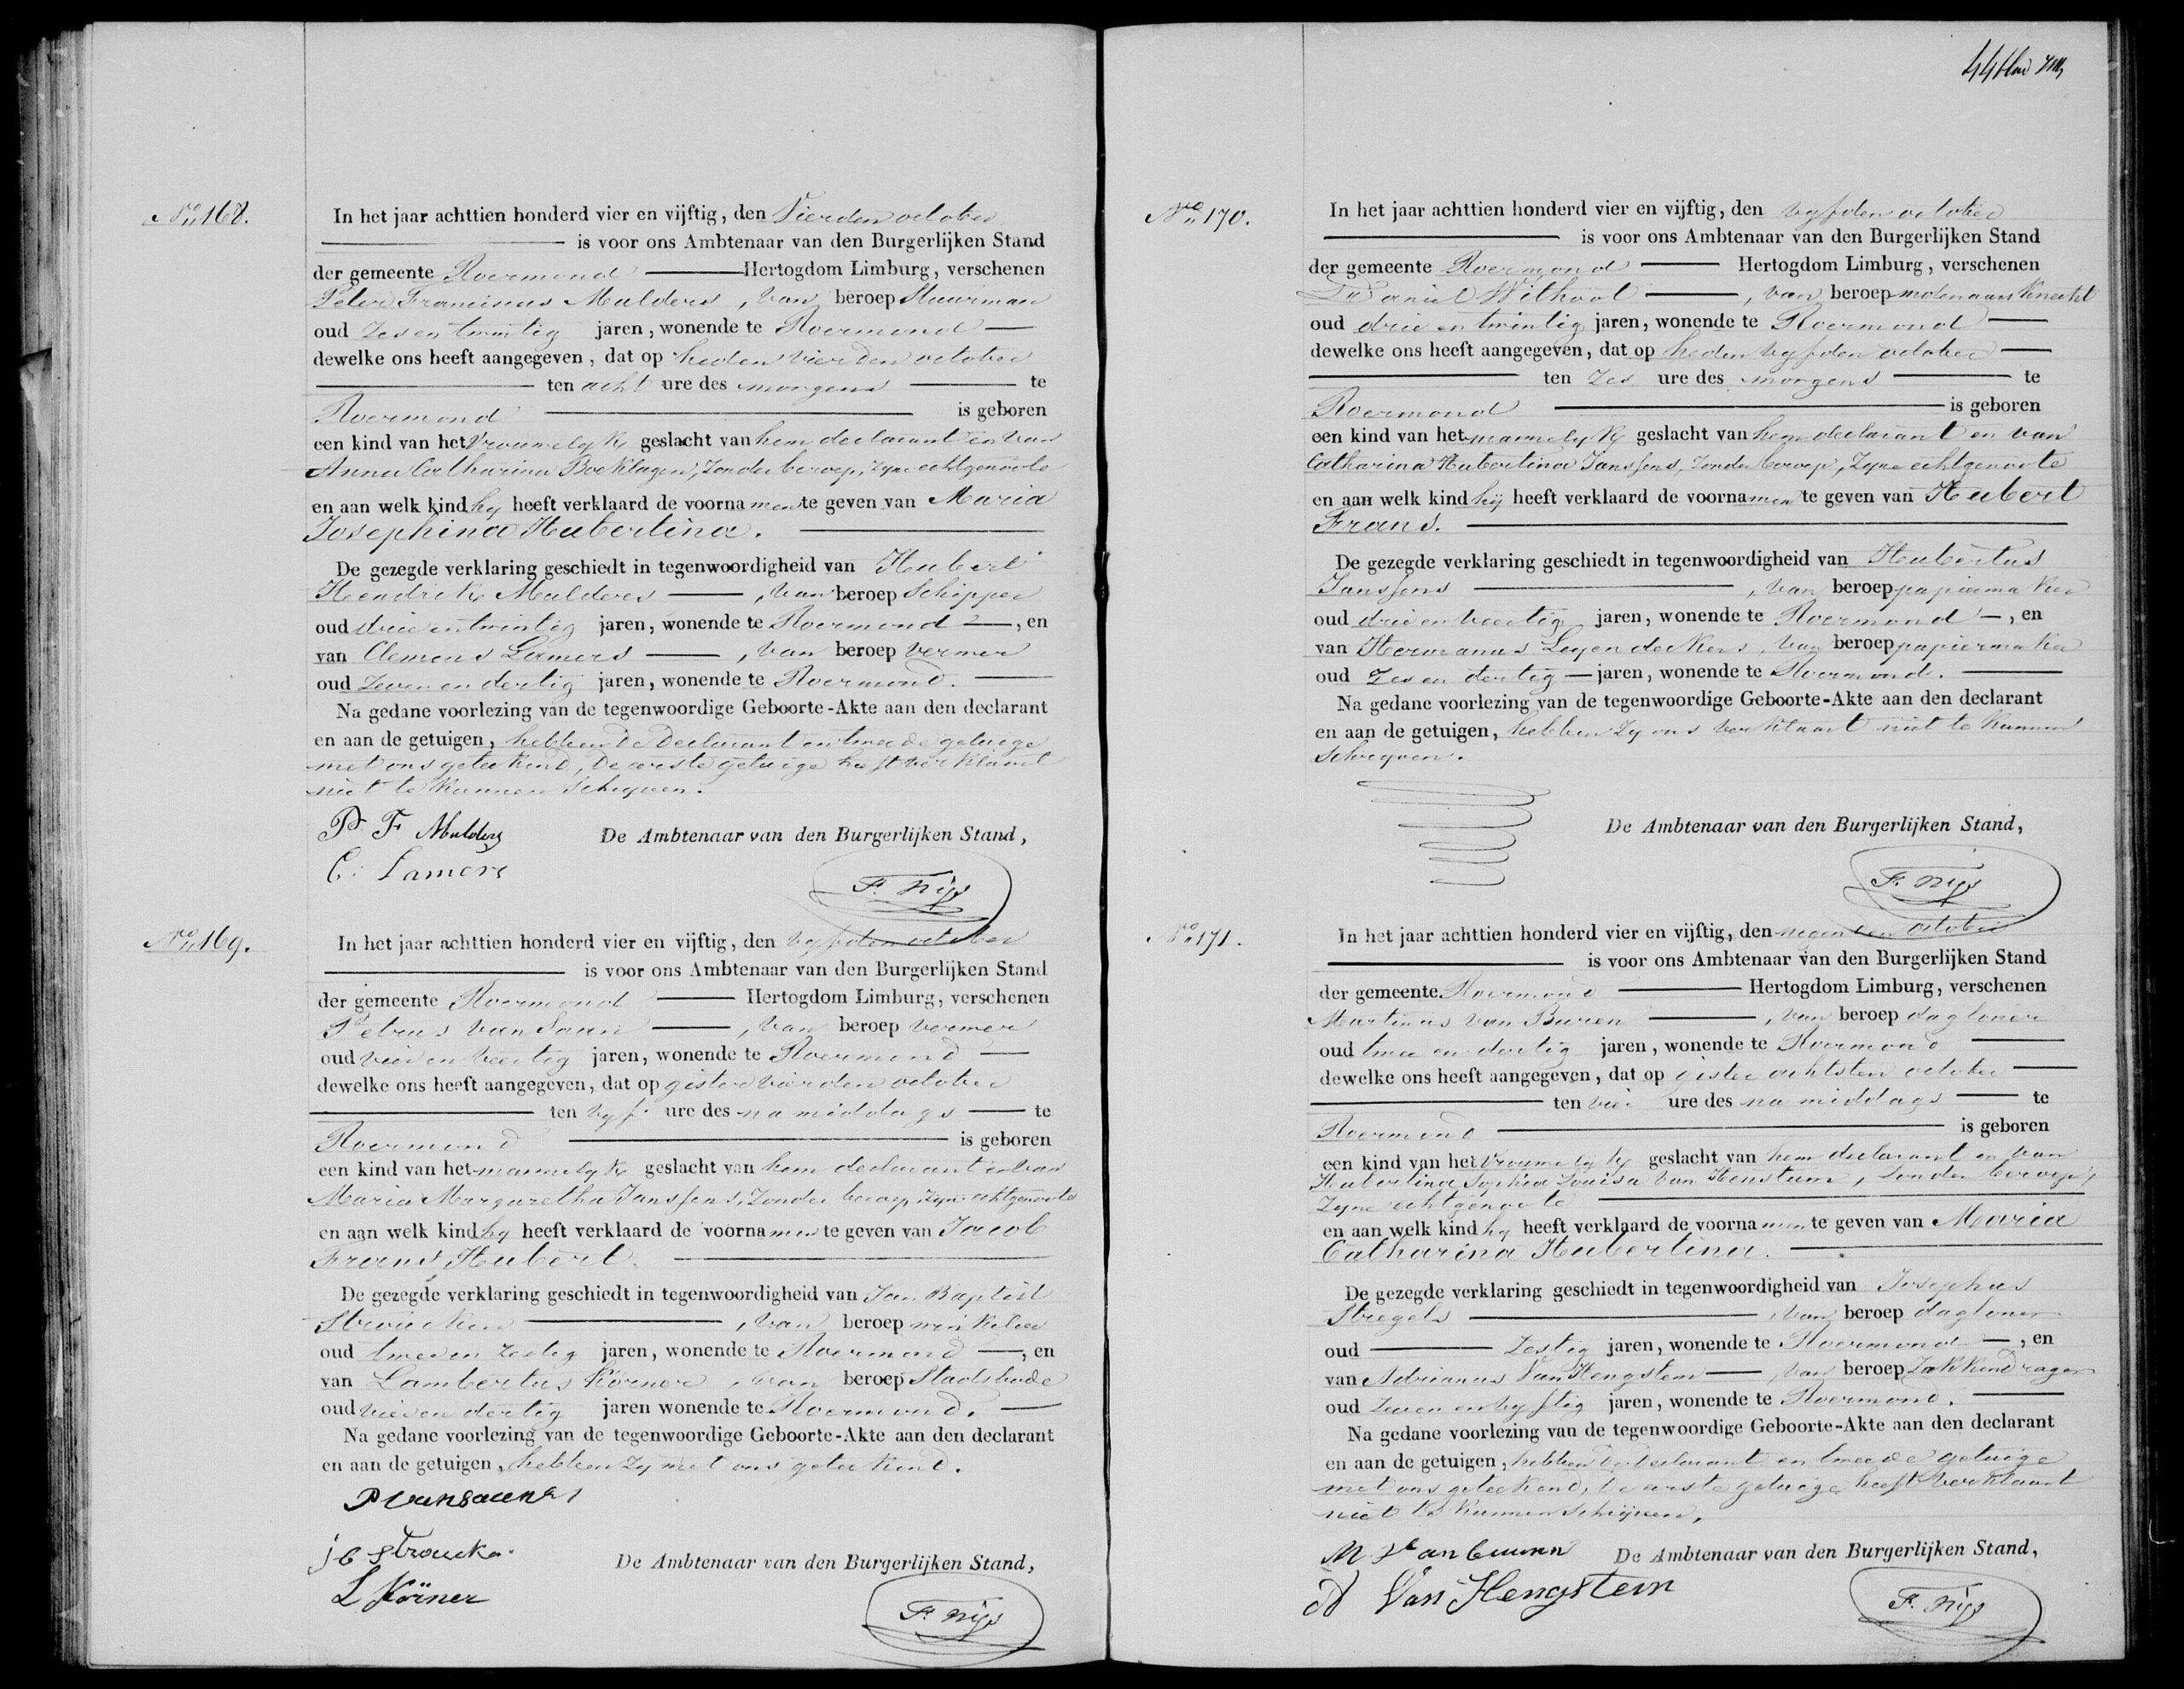 No 168.
In het jaar achttien honderd vier en vijftig, den Vierden october
is voor ons Ambtenaar van den Burgerlijken Stand
der gemeente Roermond Hertogdom Limburg, verschenen
Peter Franciscus Mulders, van beroep Stuurman
oud Zes en twintig jaren, wonende te Roermond
dewelke ons heeft aangegeven, dat op heden vierden october
ten acht ure des morgens te
Roermond is geboren
een kind van het vrouwelyk geslacht van hem declarant en van
Anna Catharina Bocklagen, Zonder beroep, zyne echtgenoote
en aan welk kind hy heeft verklaard de voornamen te geven van Maria
Josephina Hubertina.
De gezegde verklaring geschiedt in tegenwoordigheid van Hubert
Hendrik Mulders, van beroep Schipper
oud drie en twintig jaren, wonende te Roermond, en
van Clemens Lamers, van beroep verwer
oud Zeven en dertig jaren, wonende te Roermond.
Na gedane voorlezing van de tegenwoordige Geboorte-Akte aan den declarant
en aan de getuigen, hebben de Declarant en tweede getuige
met ons geteekend, de eerste getuige heeft verklaart
niet te kunnen schryven.
P F Mulders
De Ambtenaar van den Burgerlijken Stand,
C. Lamers
F. Nijs
No 169.
In het jaar achttien honderd vier en vijftig, den vyfden october
is voor ons Ambtenaar van den Burgerlijken Stand
der gemeente Roermond Hertogdom Limburg, verschenen
Petrus van Saun, van beroep verwer
oud vier en veertig jaren, wonende te Roermond
dewelke ons heeft aangegeven, dat op gister vierden october
ten vyf ure des namiddags te
Roermond is geboren
een kind van het mannelyk geslacht van hem declarant en van
Maria Margaretha Janssens, Zonder beroep, zyne echtgenoote
en aan welk kind hy heeft verklaard de voornamen te geven van Jacob
Frans Hubert.
De gezegde verklaring geschiedt in tegenwoordigheid van Jan Baptist
Stroucken, van beroep winkelier
oud twee en zestig jaren, wonende te Roermond, en
van Lambertus Körner, van beroep Stadsbode
oud vier en dertig jaren wonende te Roermond.
Na gedane voorlezing van de tegenwoordige Geboorte-Akte aan den declarant
en aan de getuigen, hebben zy met ons geteekend.
P van Saun
j b Stroucken
De Ambtenaar van den Burgerlijken Stand,
L Körner
F. Nijs
44
No 170.
In het jaar achttien honderd vier en vijftig, den vyfden october
is voor ons Ambtenaar van den Burgerlijken Stand
der gemeente Roermond Hertogdom Limburg, verschenen
Daniel Withoot, van beroep molenaars knecht
oud drie en twintig jaren, wonende te Roermond
dewelke ons heeft aangegeven, dat op heden vyfden october
ten Zes ure des morgens te
Roermond is geboren
een kind van het mannelyk geslacht van hem declarant en van
Catharina Hubertina Janssens, Zonder beroep, Zyne echtgenoote
en aan welk kind hij heeft verklaard de voornamen te geven van Hubert
Frans.
De gezegde verklaring geschiedt in tegenwoordigheid van Hubertus
Janssens, van beroep papiermaker
oud drie en veertig jaren, wonende te Roermond, en
van Hermanus Leyendeckers, van beroep papiermaker
oud Zes en dertig jaren, wonende te Roermond.
Na gedane voorlezing van de tegenwoordige Geboorte-Akte aan den declarant
en aan de getuigen, hebben Zy ons verklaart niet te kunnen
Schryven.
De Ambtenaar van den Burgerlijken Stand,
F. Nijs
No 171.
In het jaar achttien honderd vier en vijftig, den negenden october
is voor ons Ambtenaar van den Burgerlijken Stand
der gemeente Roermond Hertogdom Limburg, verschenen
Martinus van Buren, van beroep dagloner
oud twee en dertig jaren, wonende te Roermond
dewelke ons heeft aangegeven, dat op gister achtsten october
ten vier ure des namiddags te
Roermond is geboren
een kind van het vrouwelyk geslacht van hem declarant en van
Hubertina Sophia Louisa van Henstum, Zonder beroep,
Zyne echtgenoote
en aan welk kind hy heeft verklaard de voornamen te geven van Maria
Catharina Hubertina.
De gezegde verklaring geschiedt in tegenwoordigheid van Josephus
Stregels, van beroep dagloner
oud Zestig jaren, wonende te Roermond, en
van Adrianus Van Hengstem, van beroep Zakkendrager
oud Zeven en vyftig jaren, wonende te Roermond.
Na gedane voorlezing van de tegenwoordige Geboorte-Akte aan den declarant
en aan de getuigen, hebben de declarant en tweede getuige
met ons geteekend, de eerste getuige heeft verklaart
niet te kunnen schryven.
M Van buuren
De Ambtenaar van den Burgerlijken Stand,
A Van Hengstem
F. Nijs